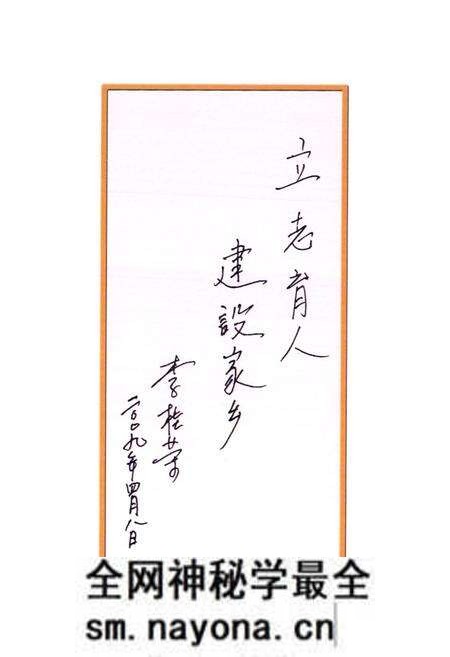 立志育人
建设家乡
李桂荣
二〇〇九年四月八日
全网神秘学最全
sm.nayona.cn